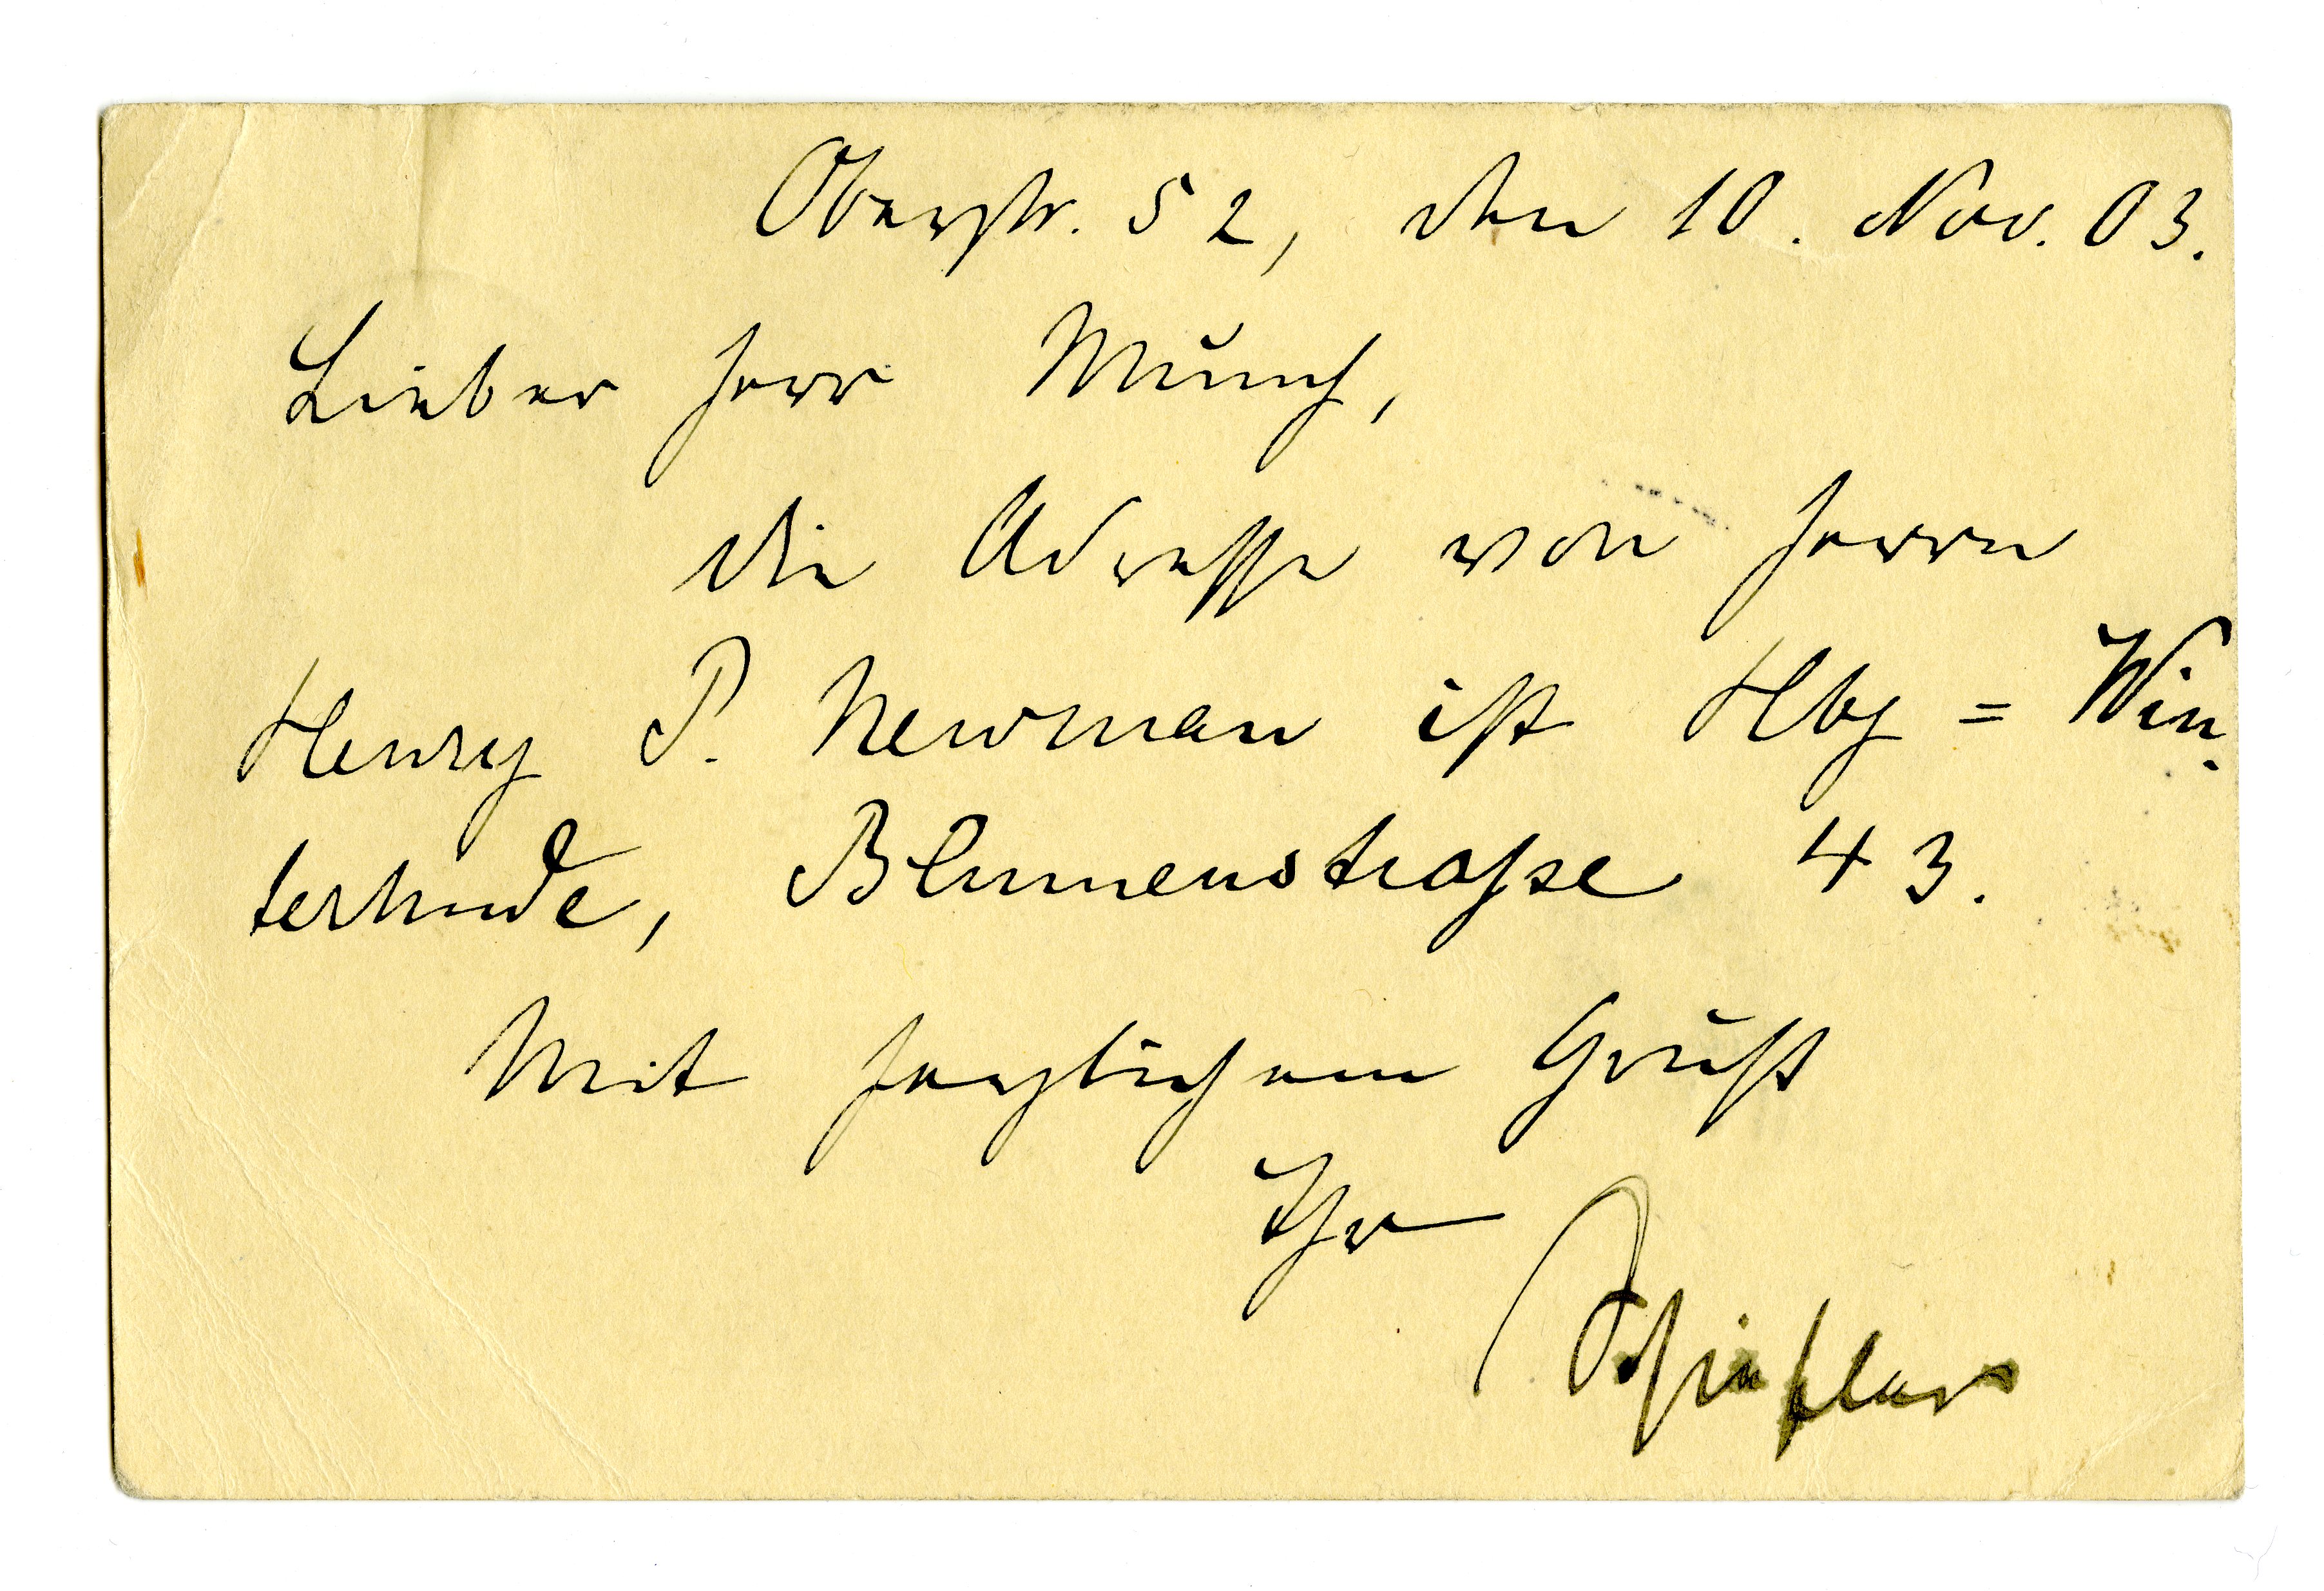 Oberstr. 52, den 10. Nov. 03.
Lieber Herr Munch,
die Adresse von Herrn
Henry P. Newman ist Hbg = Win-
terhude, Blumenstraße 43.
Mit herzlichem Gruß
Ihr
Schiefler